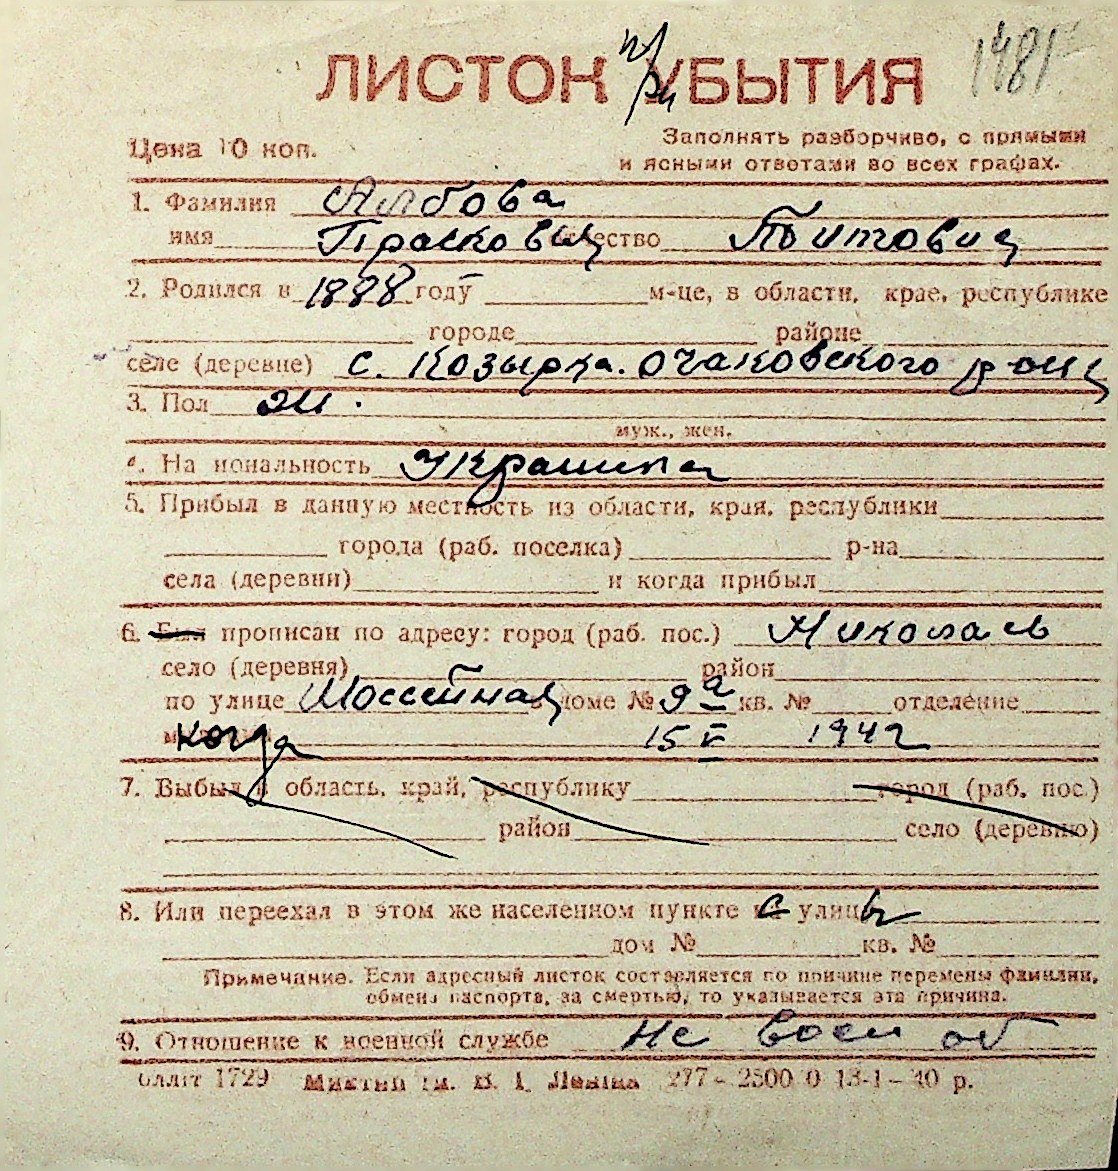 ЛИСТОК УБЫТИЯ
при
1481
Цена 10 коп.
Заполнять разборчиво, с прямыми
и ясными ответами во всех графах.
1. Фамилия Албова
имя Прасковия отчество Титовна
2. Родился в 1888 году м-це, в области, крае, республике
городе районе
селе (деревне) с. Козырка. Очаковского
3. Пол Ж.
муж., жен.
4. Национальность Украинка
5. Прибыл в данную местность из области, края, республики
города (раб. поселка) р-на
села (деревни) и когда прибыл
6. Был прописан по адресу: город (раб. пос.) Николаев
село (деревня) район
по улице Шоссейная в доме № 9а кв. № отделение
когда 15 V 1942
7. Выбыл в область, край, республику город (раб. пос.)
район село (деревню)
8. Или переехал в этом же населенном пункте с улицы
дом № кв. №
Примечание. Если адресный листок составляется по причине перемены фамилии,
обмена паспорта, за смертью, то указывается эта причина.
9. Отношение к военной службе не воен об
1729 им. 277 - 2500 0 13-1-40 р.